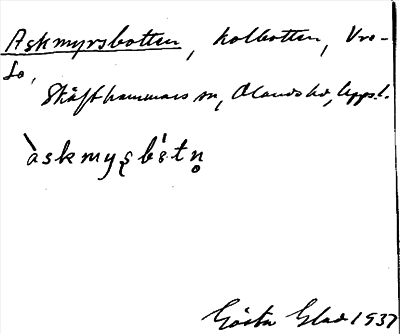 Askmyrsbotten, kolbotten, Vre-
lo,
Skäfthammars sn, Olands hd, Upps. l.
àskmyʂbɞ́tn̥
Gösta Glad 1937